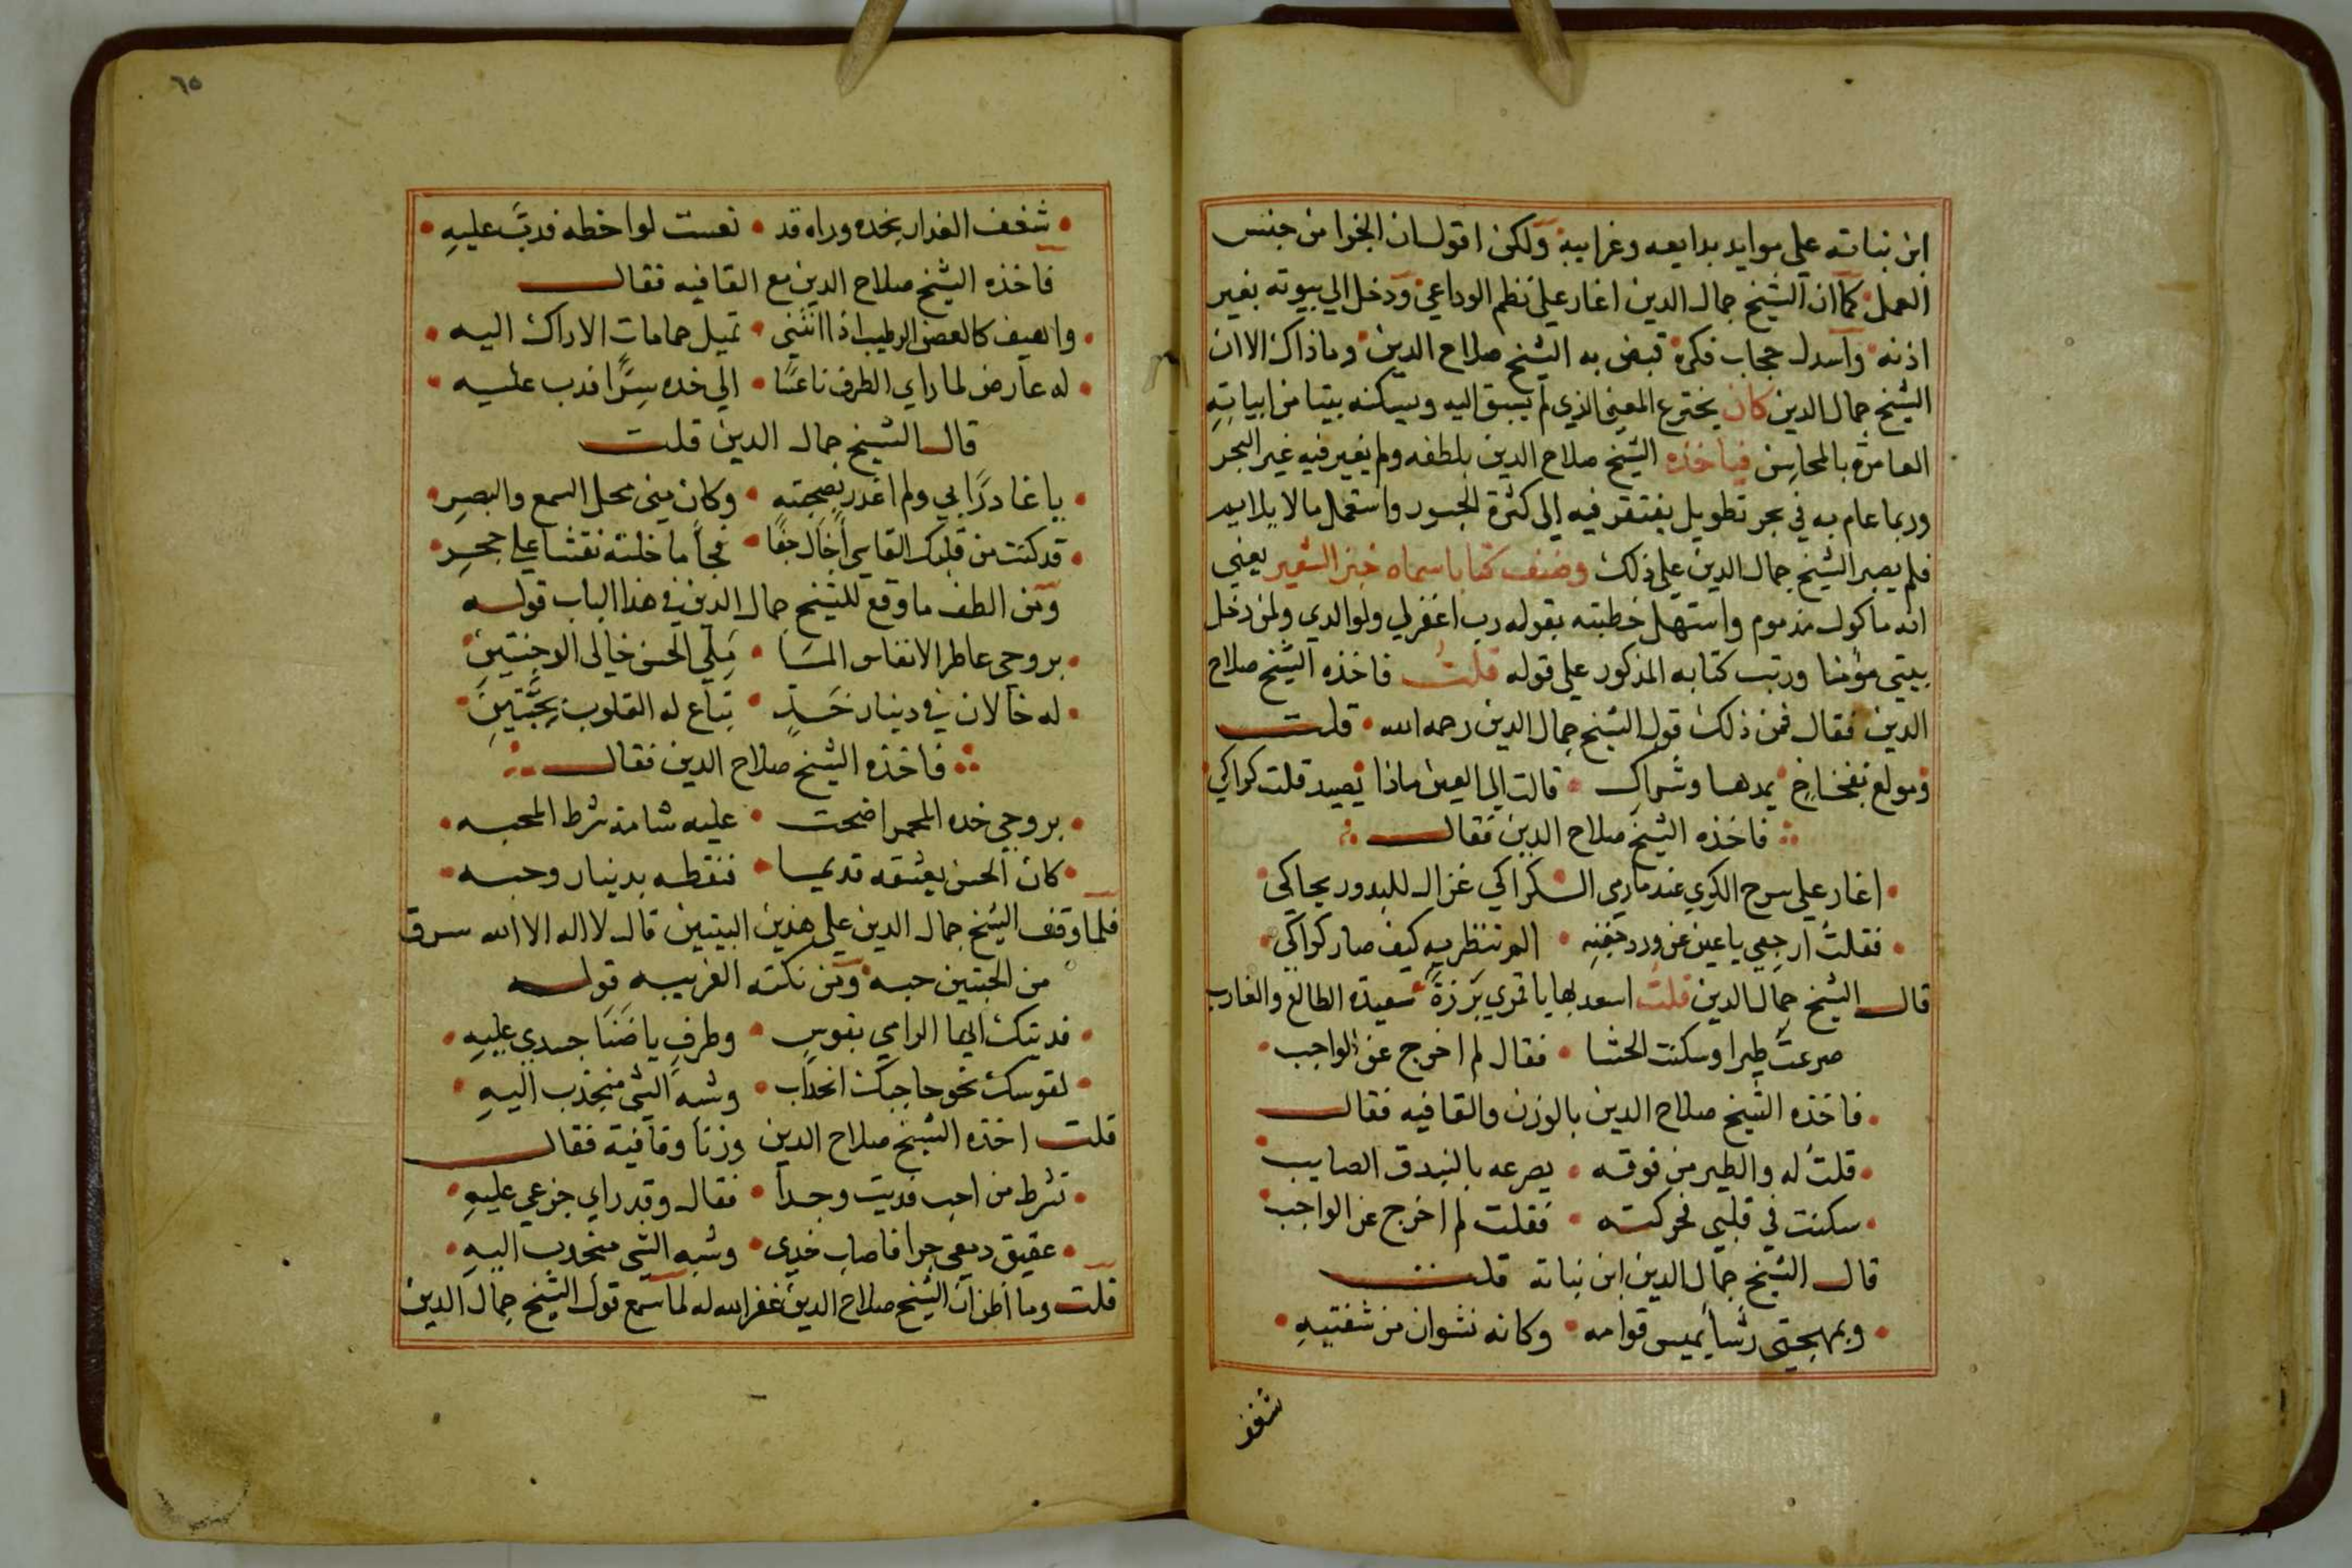 ابن نباته علي موايد بدايعه وغرايبه ولكن اقول ان الجزا من جنس
العمل كما ان الشيخ جمال الدين اغار علي نظم الوداعي ودخل الي بيوته بغير
اذنه واسدل حجاب فكره قيض به الشيخ صلاح الدين وماذاك الا ان
الشيخ جمال الدين كان يخترع المعني الذي لم يسبق اليه ويسكنه بيتا من ابياته
العامرة بالمحاسن فياخذه الشيخ صلاح الدين بلطفه ولم يغير فيه غير البحر
وربما عام به في بحر تطويل يفتقر فيه الي كثرة الجسور واستعمال مالا يلايم
فلم يصبر الشيخ جمال الدين علي ذلك وصنف كتابا سماه خبز الشعير يعني
انه ماكول مذموم واستهل خطبته بقوله رب اغفرلي ولوالدي ولمن دخل
بيتي مؤمنا ورتب كتابه المذكور علي قوله قلتُ فاخذه الشيخ صلاح
الدين فقال فمن ذلك قول الشيخ جمال الدين رحمه الله • قلت
ومولع بفخاخ يمدها وشراك • قالت لي العين ماذا يصيد قلت كراكي
فاخذه الشيخ صلاح الدين فقال
• اغار علي سرح الكري عندما رمي الـكراكي غزال للبدور يحاكي
• فقلتُ ارجعي ياعين عن ورد جفنه • الم تنظريه كيف صار كراكي •
قال الشيخ جمال الدين قلتُ اسعد بها ياقمري برزةً سعيدة الطالع والغارب
صرعتَ طيرا وسكنت الحشا • فقال لم اخرج عن الواجب •
• فاخذه الشيخ صلاح الدين بالوزن والقافيه فقال
• قلتُ له والطير من فوقه • يصرعه بالبندق الصايب
• سكنت في قلبي فحركته • فقلت لم اخرج عن الواجب
قال الشيخ جمال الدين ابن نباته قلت
• وبمهجتي رشأ يميس قوامه • وكانه نشوان من شفتيهِ •
شغف
٦٥
• شغف العذار بخده وراه قد • نعست لواحظه فدبَّ عليهِ •
فاخذه الشيخ صلاح الدين مع القافيه فقال
• واهيف كالغصن الرطيب اذا انثني • تميل حمامات الاراك اليه •
• له عارض لما راي الطرف ناعسًا • الي خده سِرًّا فدب عليه •
قال الشيخ جمال الدين قلت
• ياغادرًا بي ولم اغدر بصحبته • وكان مني محل السمع والبصرِ •
• قد كنت من قلبك القاسي أخال جفًا • فجأ ما خلته نقشا علي حجرِ •
ومن الطف ما وقع للشيخ جمال الدين في هذا الباب قوله
• بروحي عاطر الانفاس المسَا • مَلِي الحسن خالي الوجنتينِ •
• له خالان في دينار خَدٍ • تباع له القلوب بحبَّتينِ •
فاخذه الشيخ صلاح الدين فقال
• بروحي خده المحمر اضحت • عليه شامة شرط المحبه •
• كان الحسن يعشقه قديما • فنقطه بدينار وحبه •
فلما وقف الشيخ جمال الدين علي هذين البيتين قال لا اله الا الله سرق
من الحبتين حبه ومن نكته الغريبه قوله
• فديتك ايها الرامي بقوسٍ • وطرفٍ ياضَنَا جسدي عليهِ •
• لقوسك نحو حاجبك انجذاب • وشبه الشي منجذب اليهِ •
قلت اخذه الشيخ صلاح الدين وزنًا وقافية فقال
• تشرط من احب فديت وجدًا • فقال وقد راي جزعي عليهِ •
• عقيق دمعي جرا فاصاب خدي • وشبه الشي منجدب اليهِ •
قلت وما اظن ان الشيخ صلاح الدين غفر الله له لما سمع قول الشيخ جمال الدين